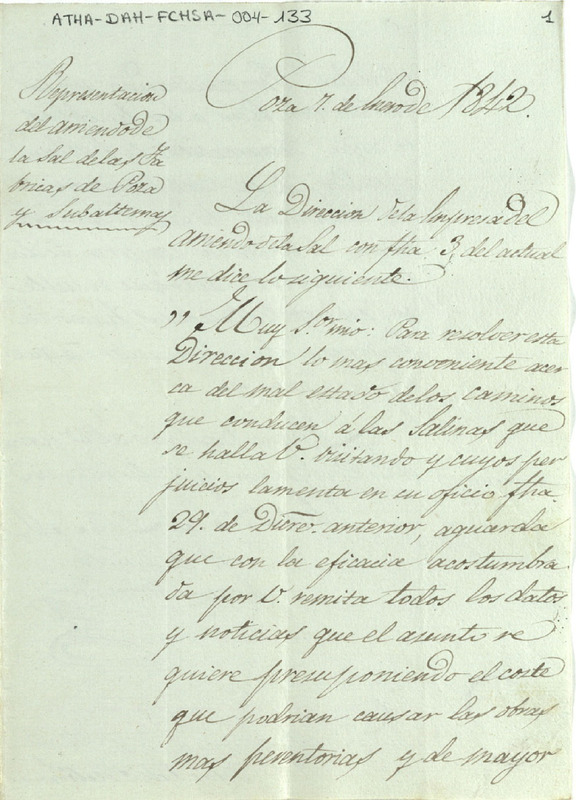 ATHA-DAH-FCHSA-004-133
1
Representacion
del arriendo de
la Sal de las Fa
bricas de Poza
y Subalternas
Poza 7. de Enero de 1842.
La Direccion de la Empresa del
arriendo de la Sal con fha. 3, del actual
me dice lo siguiente.
" Muy Sor. mio: Para resolver esta
Direccion lo mas conveniente acer
ca del mal estado de los caminos
que conducen á las Salinas que
se halla V. visitando y cuyos per
juicios lamenta en su oficio fha.
29. de Dicre. anterior, aguarda
que con la eficacia acostumbra
da por V. remita todos los datos
y noticias que el asunto re
quiere presuponiendo el coste
que podrian causar las obras
mas perentorias y de mayor